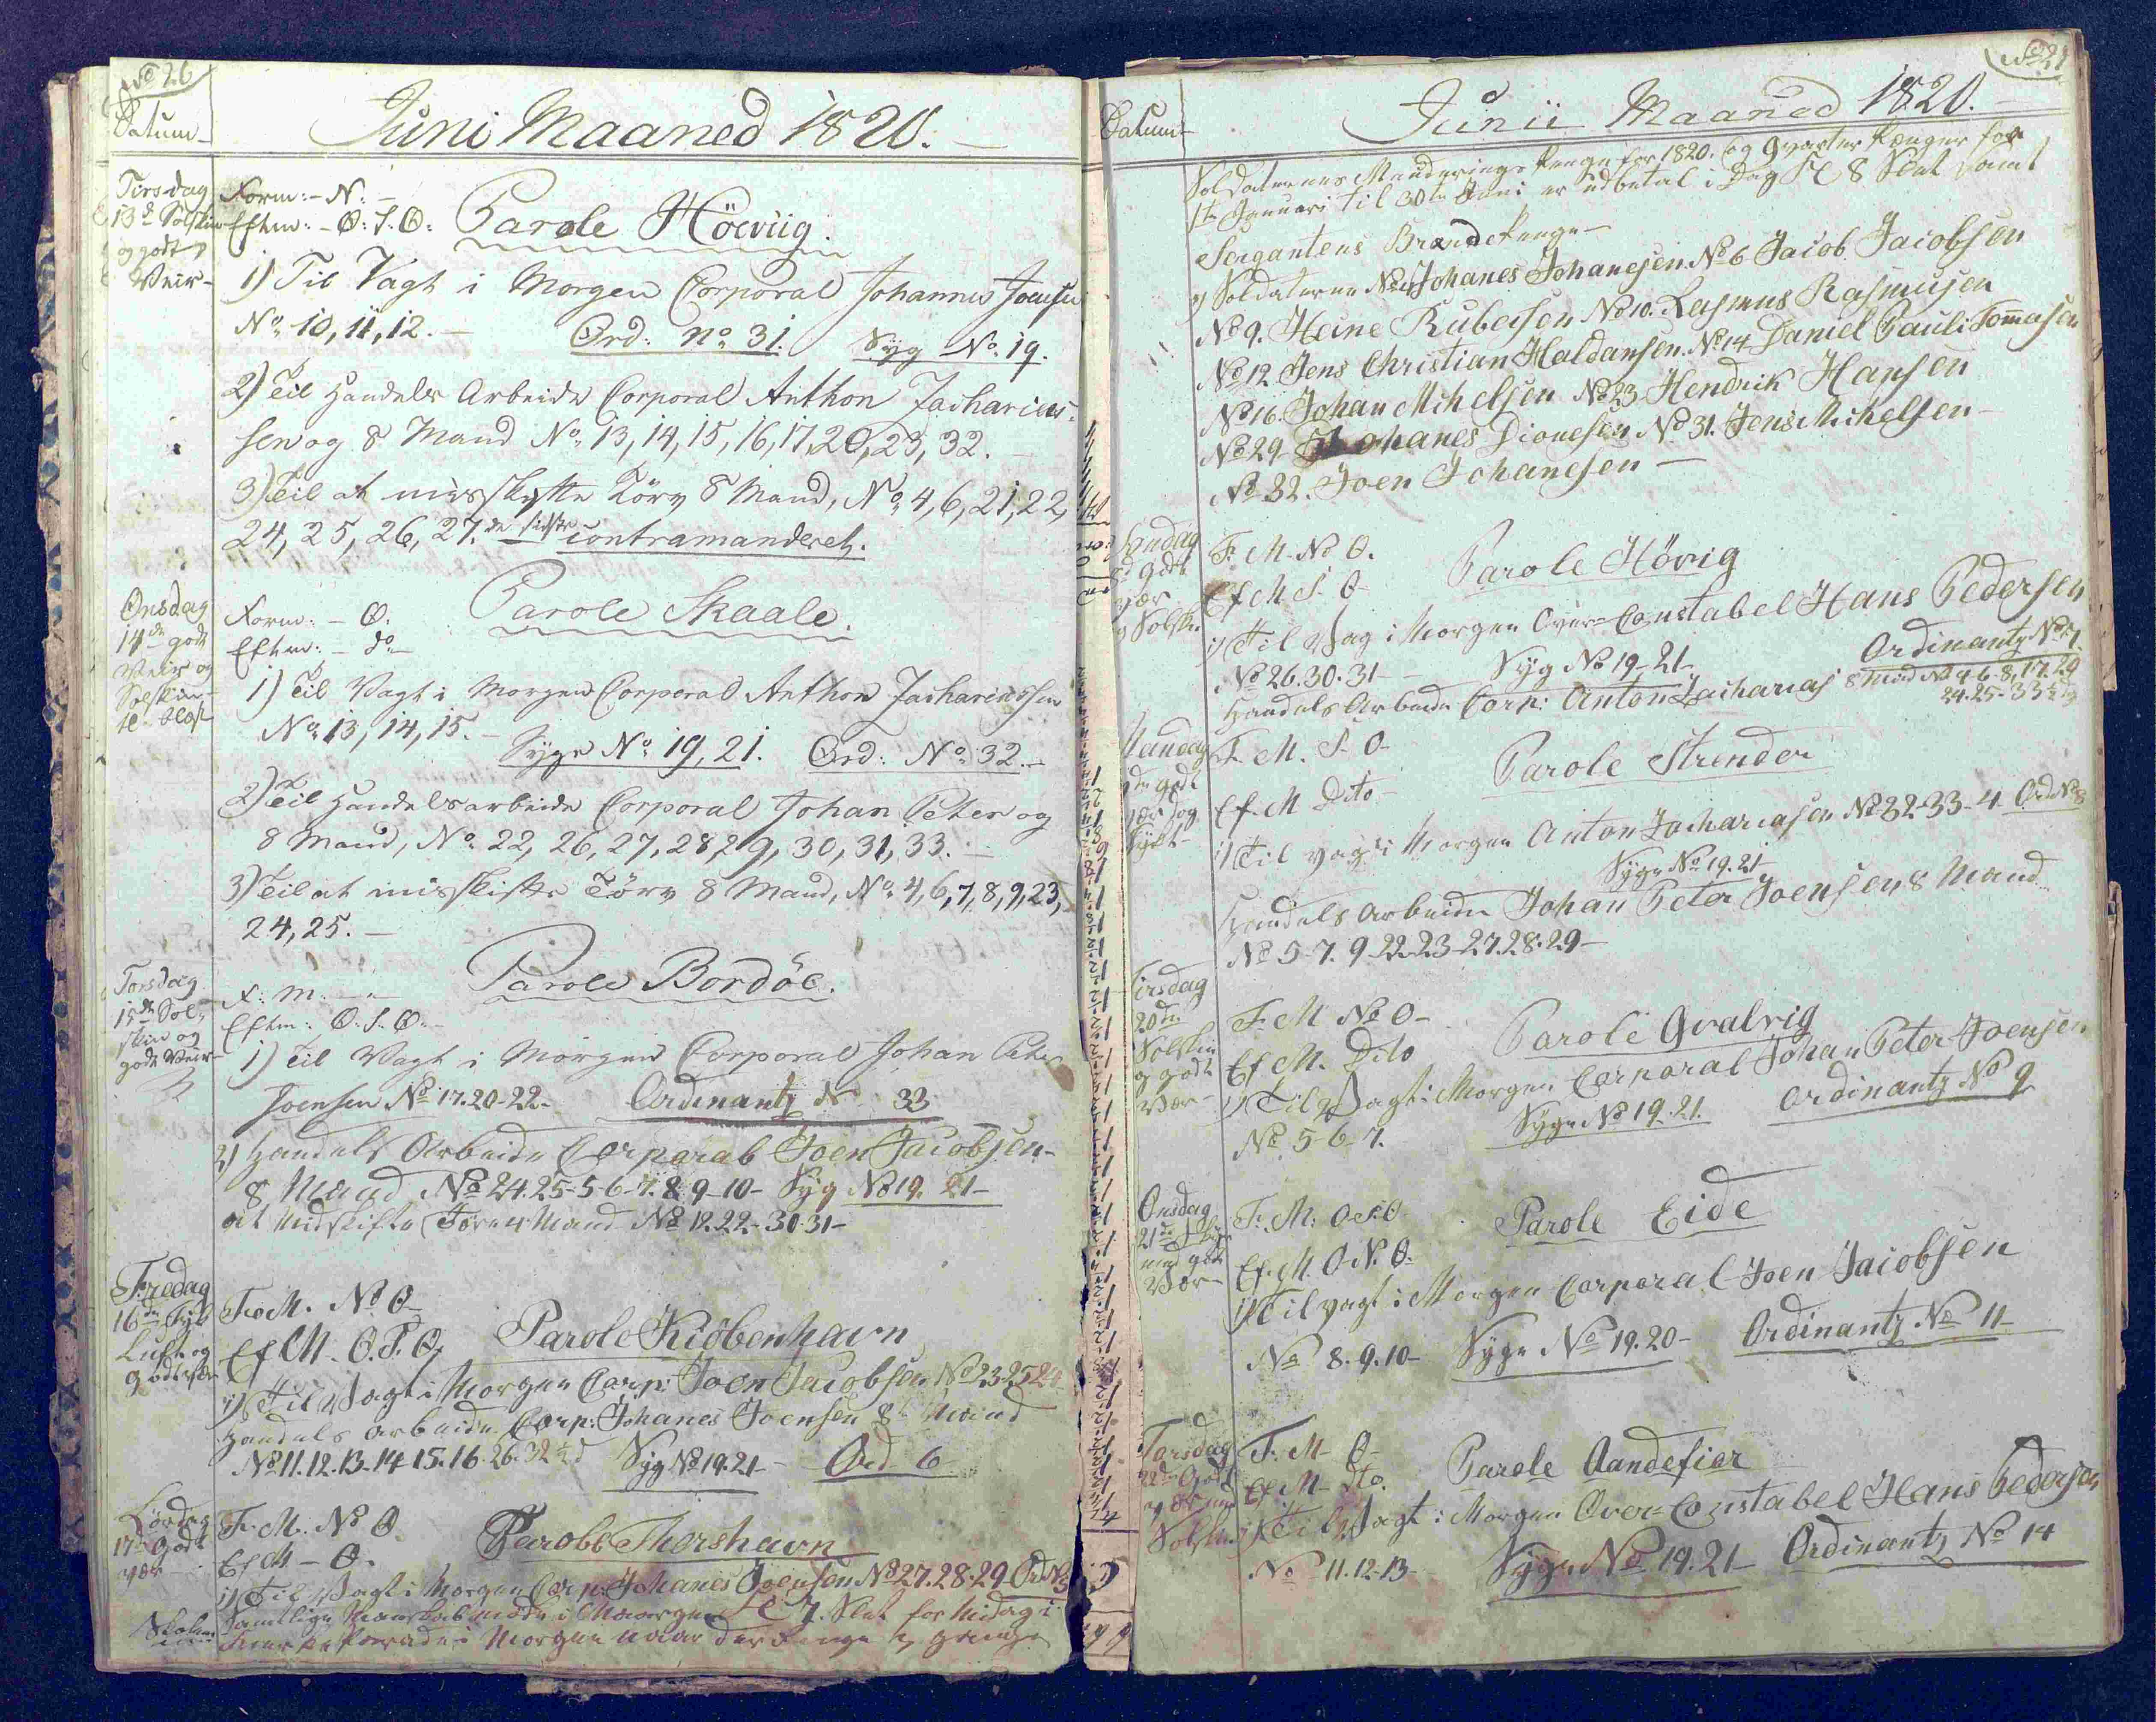 No 26
Datum
Juni Maaned 1820.
Tirsdag
13de Solskin
og godt
Veir
Form: - N: -
Eftm: - O: S. O:
Parole Höeviig.
1) Til Vagt i Morgen Corporal Johannes Joensen
No 10, 11, 12. - Ord: no 31. Syg No 19.
2) Til Handels Arbeide Corporal Anthon Zacharias-
sen og 8 Mand No 13, 14, 15, 16, 17, 20, 23, 32.
3) Til at misskytte Törv 8 Mand, No 4, 6, 21, 22,
24, 25, 26, 27. de sidste contramanderet.
Onsdag
14de godt
Veir og
Solskin
Form: - O.
Eftm: - do
Parole Skaale.
1) Til Vagt i Morgen Corporal Anthon Zachariassen
No 13, 14, 15. -
Syge No 19, 21. Ord: No 32. -
2) Til Handelsarbeide Corporal Johan Peter og
8 Mand, No 22, 26, 27, 28, 29, 30, 31, 33. -
3) Til at misskifte Törv 8 Mand, No 4, 6, 7, 8, 9, 23,
24, 25. -
Torsdag
15de Sol-
skin og
godt Veir
F: M: -
Eftm: O. S. O. -
Parole Bordöe.
1) Til Vagt i Morgen Corporal Johan Peter
Joensen No 17. 20-22- Ordinantz No 33
2) Handels Arbeide Corporal Joen Jacobsen-
8 Mand No 24. 25-5-6-7. 8. 9-10- Syg No 19. 21-
at Midskifte Törv 4 Mand No 12. 22-30-31-
Fredag
16de Tyk
Luft og
godt vær
F: M. No O-
Ef M. O. S. O.
Parole Kiöbenhavn
1) Til Vagt i Morgen Corp: Joen Jacobsen No 23-25 24
Handels Arbeide Corp: Johanes Joensen 8t Mand
No 11. 12. 13. 14 15. 16. 26. 32 Syg No 19. 21- Ord 6
Lördag
17de godt
vær
F. M. No O
Ef M - O.
Parole Thorshavn
1) Til Vagt i Morgen Corp: Johanes Joensen No 27. 28. 29 Ord No 5
Samtlige Mandskab möde i Morgen Kl 7. Slet for Midag i
No 27
Datum
Junii Maaned 1820. -
Soldaternes Munderings Penge for 1820. og Qvarter Penge for
1te Januari til 30te Juni er udbetal i Dag Kl 8 Slet samt
Sergantens Brænde Penge -
og Soldaterne No 4 Johanes Johanesen. No 6 Jacob Jacobsen
No 9. Heine Rubersen No 10. Rasmus Rasmusen
No 12 Jens Christian Haldansen. No 14 Daniel Pauli Tommasen
No 16. Johan Michelsen No 23 Hendrik Hansen
No 29 Johanes Dionesen No 31. Jens Michelsen-
No 32. Joen Johanesen -
Söndag
godt
vær
og Solskin
F. M. No O.
Ef M S. O-
Parole Hövig
1) Til Vag i Morgen Over-Constabel Hans Pedersen
No 26. 30. 31 - Syg No 19-21- Ordinantz No 7.
Handels Arbeide Corp: Anton Zacharias 8 Mand No 4-6-8, 17. 20
24. 25-33
Mandag
godt
vær og
tykt-
F. M. S. O-
Ef. M Dito-
Parole Strender
1) Til vagt i Morgen Anton Zachariasen No 32-33-4- Ord No 8
Syge No 19. 21-
Handels Arbeide Johan Peter Joensen, 8 Mand
No 5-7. 9-22-23-27. 28. 29-
Tirsdag
20de
Solskin
og godt
vær-
F. M No O-
Ef M. Dito
Parole Qvalvig
1) Til Vagt i Morgen Corporal Johan Peter Joensen
No 5-6-7. Syge No 19. 21. Ordinantz No 9
Onsdag
21de
med godt
vær-
F: M: O S O
Ef. M. O. N. O.
Parole Eide
1) Til vagt i Morgen Corporal Joen Jacobsen
No 8. 9. 10- Syge No 19. 20- Ordinantz No 11-
Torsdag
22de Godt
vær med
Solskin
F: M- O-
Ef M- dto.
Parole Aandefier
1) Til Vagt i Morgen Over-Constabel Hans Pedersen
No 11. 12-13- Syge No 19. 21- Ordinantz No 14